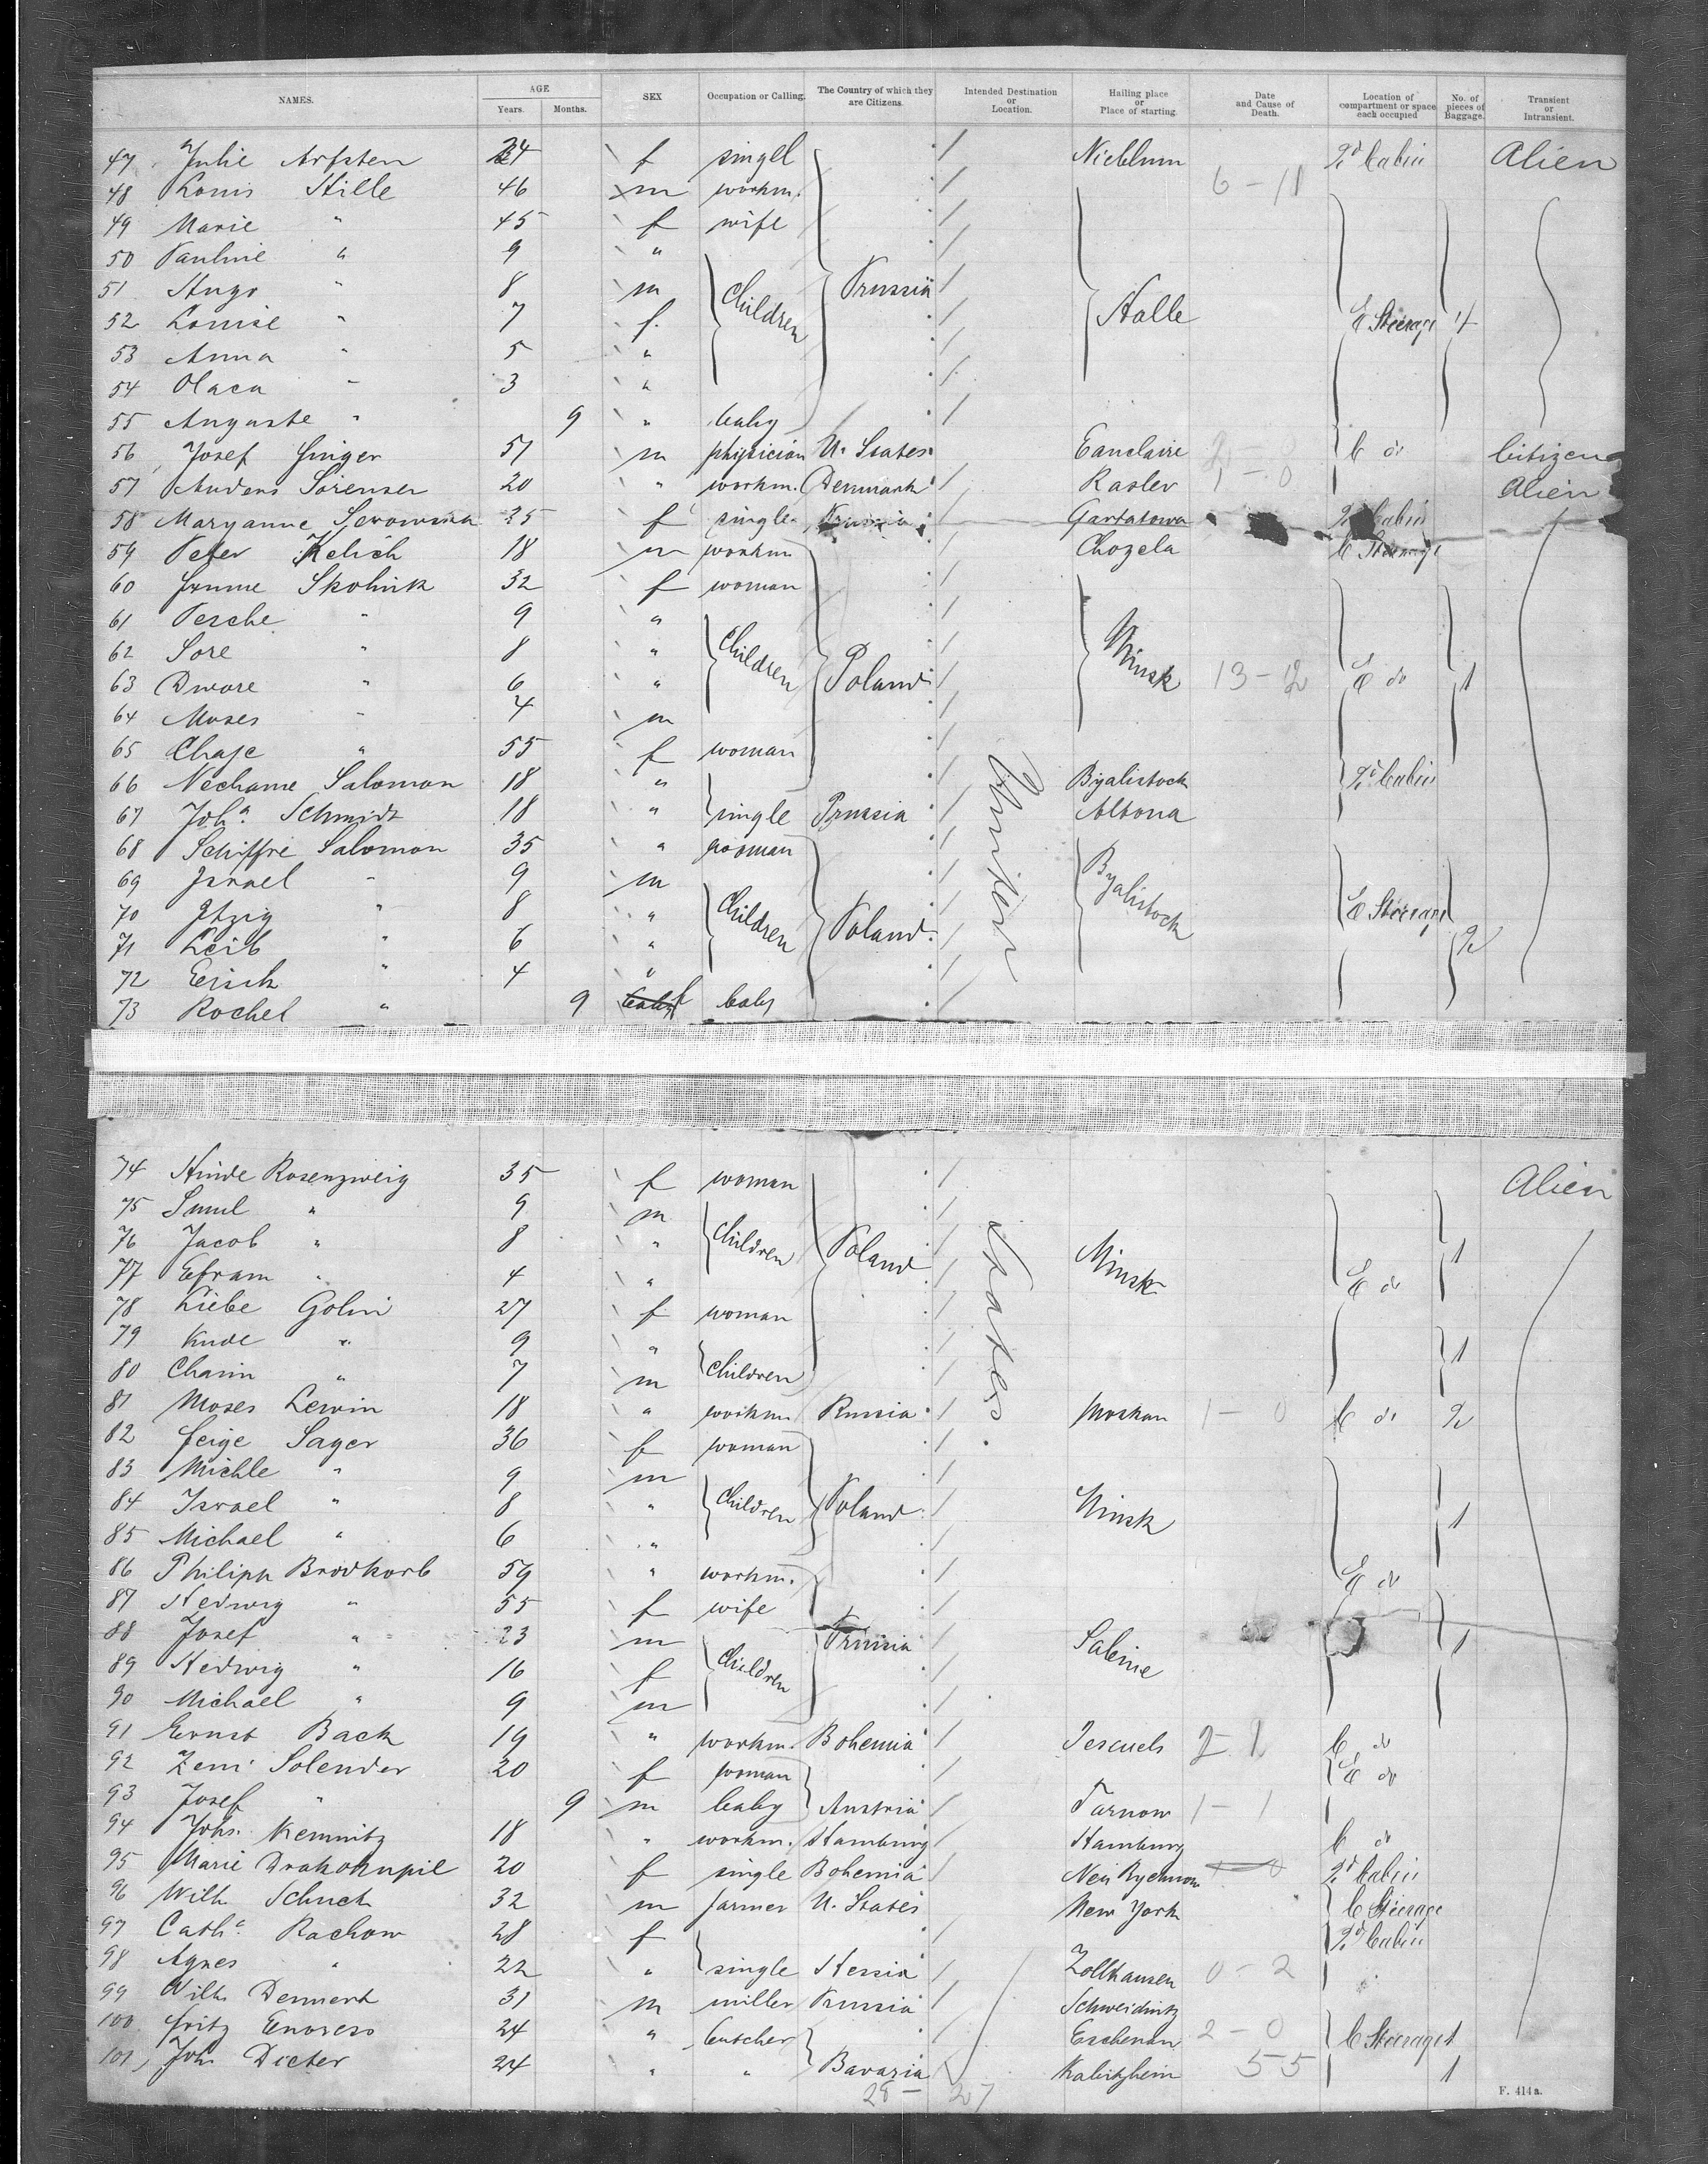 NAMES. AGE Years. Months. SEX Occupation or Calling. The Country of which they are Citizens. Intended Destination or Location. Hailing place or Place of starting. Date and Cause of Death. Location of compartment or space each occupied No. of pieces of Baggage. Transient or Intransient.
47 Julie Arfsten 24 f singel Nieblum 2d Cabin Alien
48 Louis Stille 46 m workm. 6 - 11
49 Marie " 45 f wife
50 Pauline " 9 "
51 Hugo " 8 m Children Prussia
52 Louise " 7 f. Halle E Steerage 4
53 Anna " 5 "
54 Olaca " 3 "
55 Auguste " 9 " baby
56 Josef Singer 51 m physician U. States Eauclaire C do Citizen
57 Anders Sörensen 20 " workm. Denmark Raslev 1 - 0 Alien
58 Maryanne 25 f single Prussia 2d Cabin
59 Peter Kelich 18 m workm Chozela C Steerage
60 Skolnik 32 f woman
61 Pesche " 9 "
62 Sore " 8 " Children
63 Dwore " 6 " Poland Minsk 13 - 2 E do 1
64 Moses " 4 m
65 Chaje " 55 f woman United
66 Nechame Salomon 18 " Byalistock 2d Cabin
67 Joha. Schmidt 18 " single Prussia Altona
68 Schiffre Salomon 35 " woman
69 Israel " 9 m Byalistock
70 Itzig " 8 " Children E Steerage
71 Leib " 6 " Poland 2
72 " 4 "
73 Rochel " 9 baby f baby
74 Hinde Rosenzweig 35 f woman Alien
75 Smul " 9 m
76 Jacob " 8 " Children Poland States. Minsk 1
77 Efram " 4 " E do
78 Liebe Golin 27 f woman
79 Kude " 9 " 1
80 Chaim " 7 m Children
81 Moses Lewin 18 " workm Russia Moskau 1 - 0 C do 2
82 Feige Sager 36 f woman
83 Michle " 9 m
84 Israel " 8 " Children Poland Minsk 1
85 Michael " 6 "
86 Philipp Brodkorb 59 " workm. E do
87 Hedwig " 55 f wife
88 Josef " 23 m Prussia Salesie 1
89 Hedwig " 16 f Children
90 Michael " 9 m
91 Ernst Back 19 " workm. Bohemia C do
92 Solender 20 f woman E do
93 Josef " 9 m baby Austria Tarnow 1 - 1
94 Johs. Kemnitz 18 " workm. Hamburg Hamburg C do
95 Marie Drahokupil 20 f single Bohemia 2d Cabin
96 Wilh. Schuck 32 m farmer U. States New York C Steerage
97 Catha. Rachow 28 f 2d Cabin
98 Agnes " 22 " single Hessia Zollhausen 0 - 2
99 Wilh. Dennert 31 m miller Prussia Schweidnitz
100 Fritz Endress 24 " butcher Eschenau 2 - 0 C Steerage 1
101 Joh. Dieter 24 " " Bavaria 55 1
28 - 27
F. 414 a.